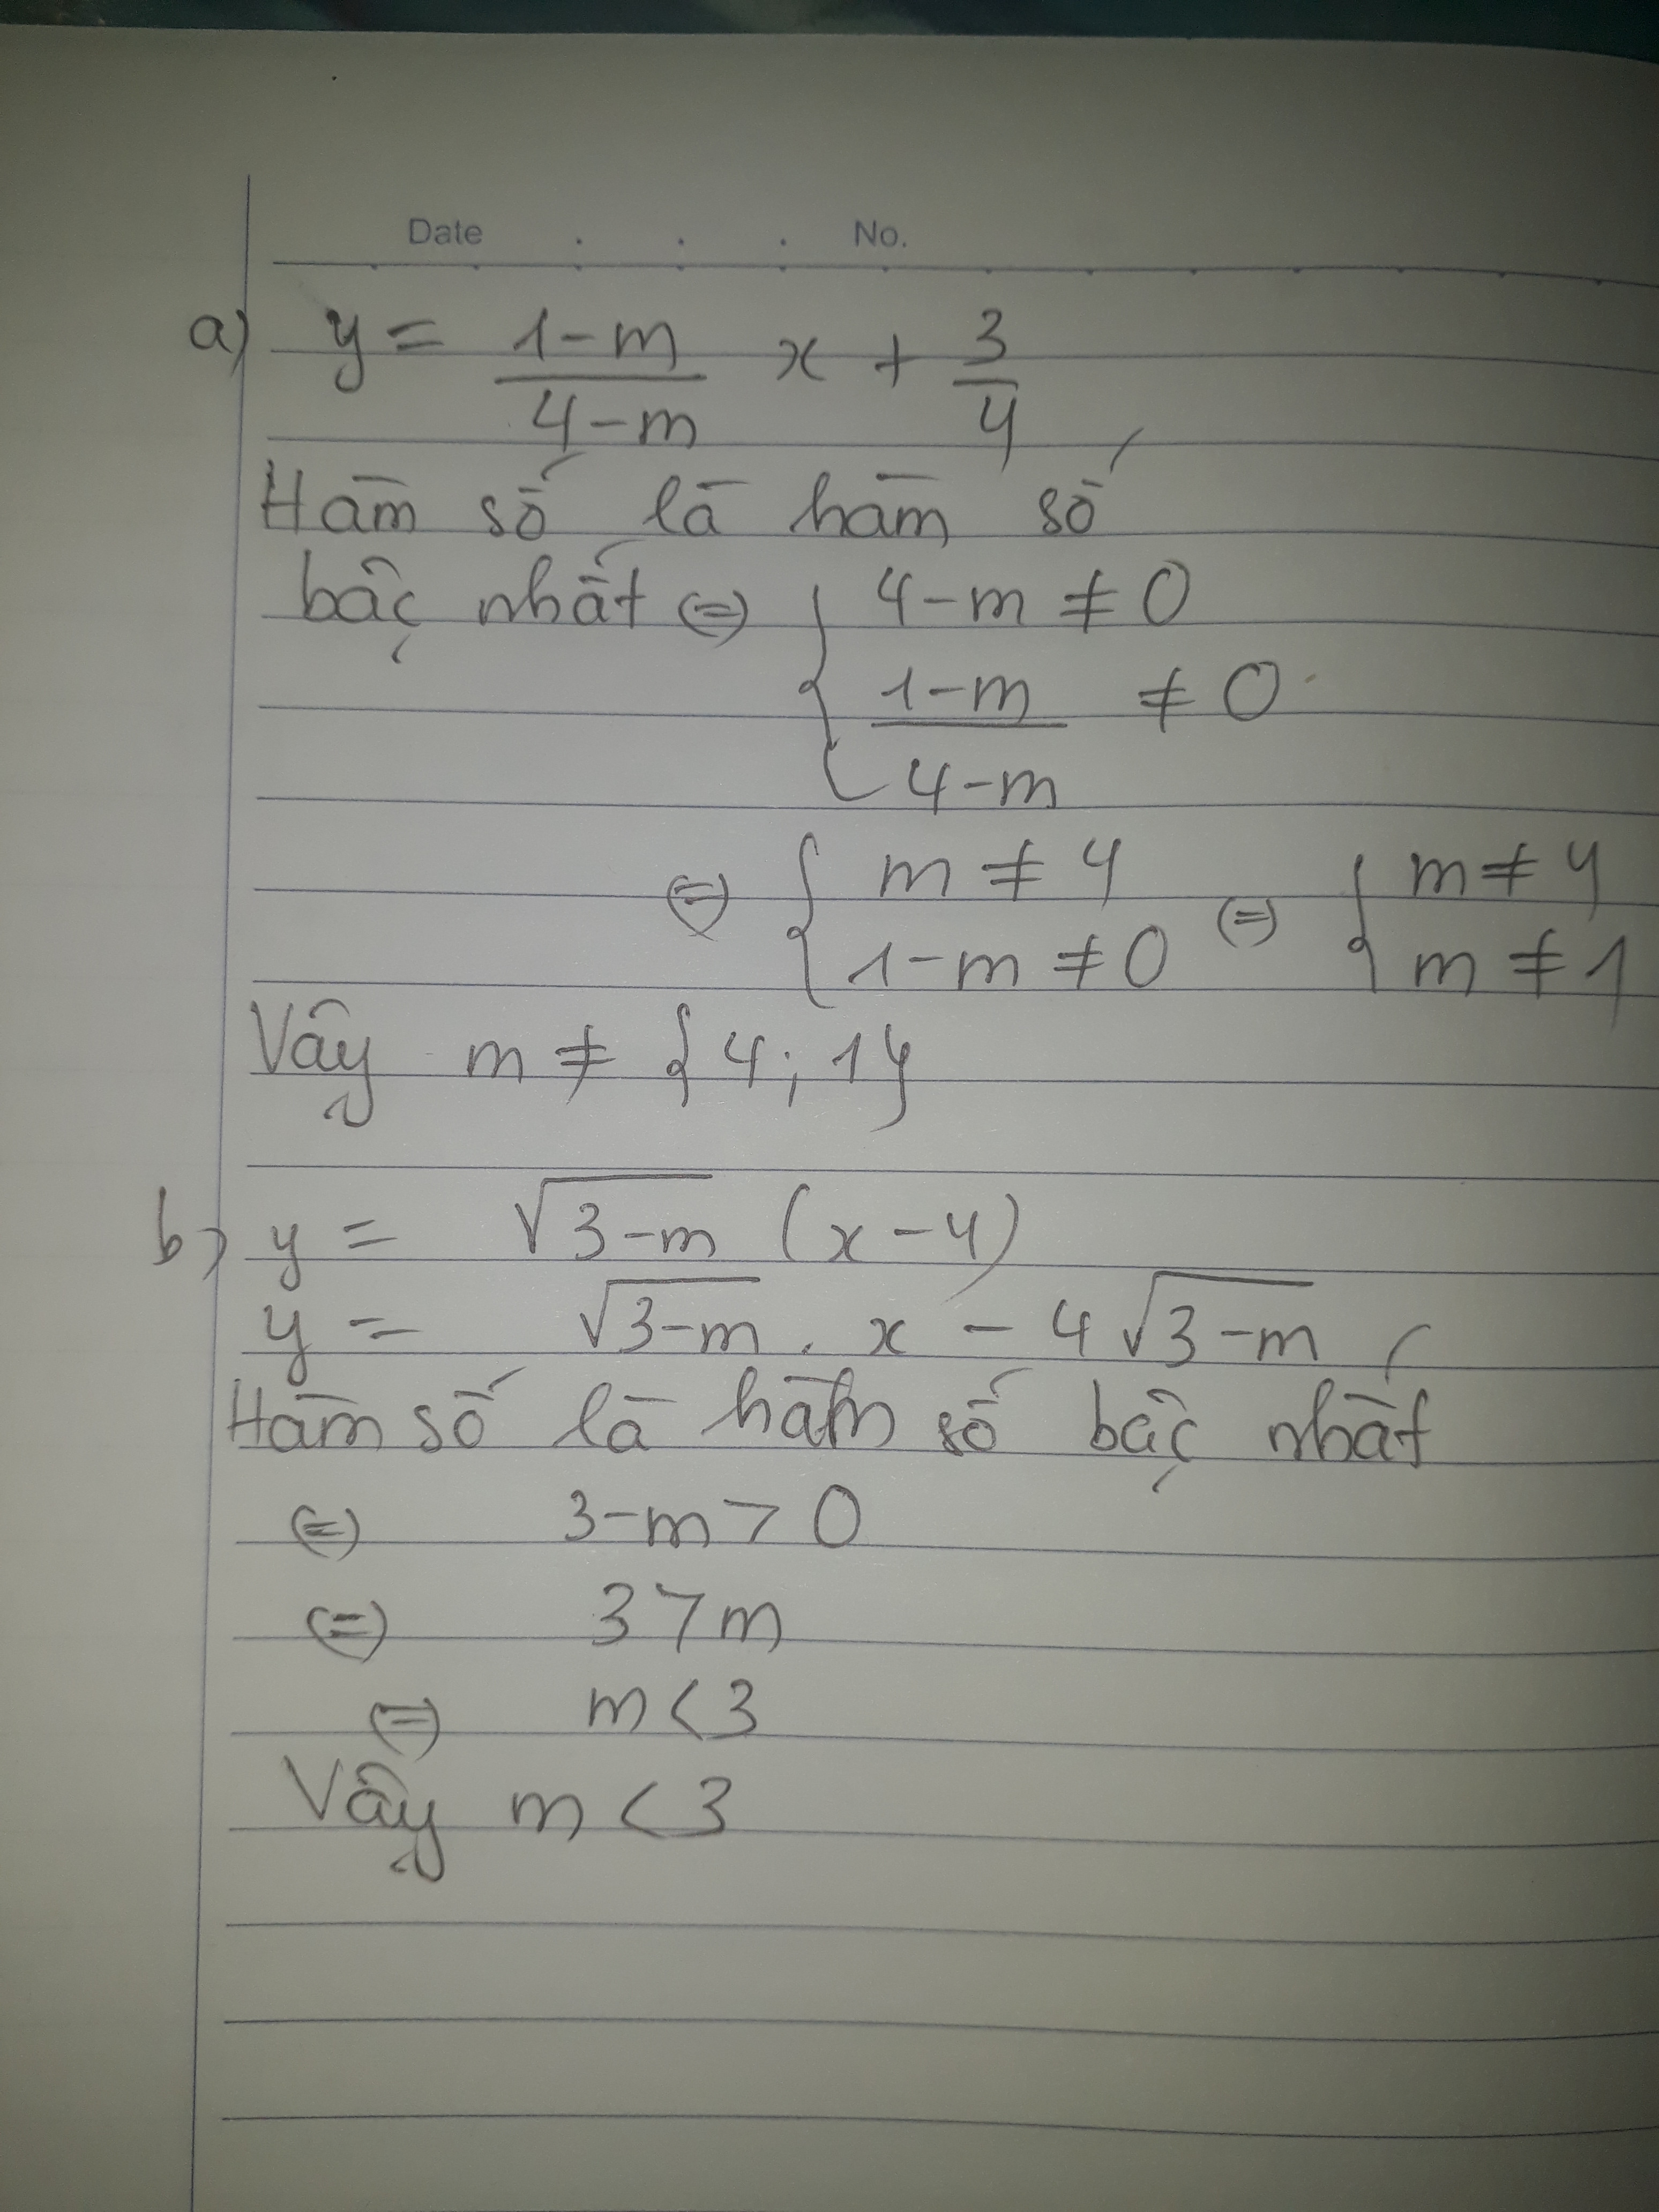 Date . . . No.
a) y = \frac{1-m}{4-m} x + \frac{3}{4}
Hàm số là hàm số
bậc nhất ⇔ { 4-m ≠ 0
\frac{1-m}{4-m} ≠ 0
⇔ { m ≠ 4 ; 1-m ≠ 0 ⇔ { m ≠ 4 ; m ≠ 1
Vậy m ≠ {4; 1}
b) y = √(3-m) (x-4)
y = √(3-m) . x - 4√(3-m)
Hàm số là hàm số bậc nhất
⇔ 3-m > 0
⇔ 3 > m
⇔ m < 3
Vậy m < 3